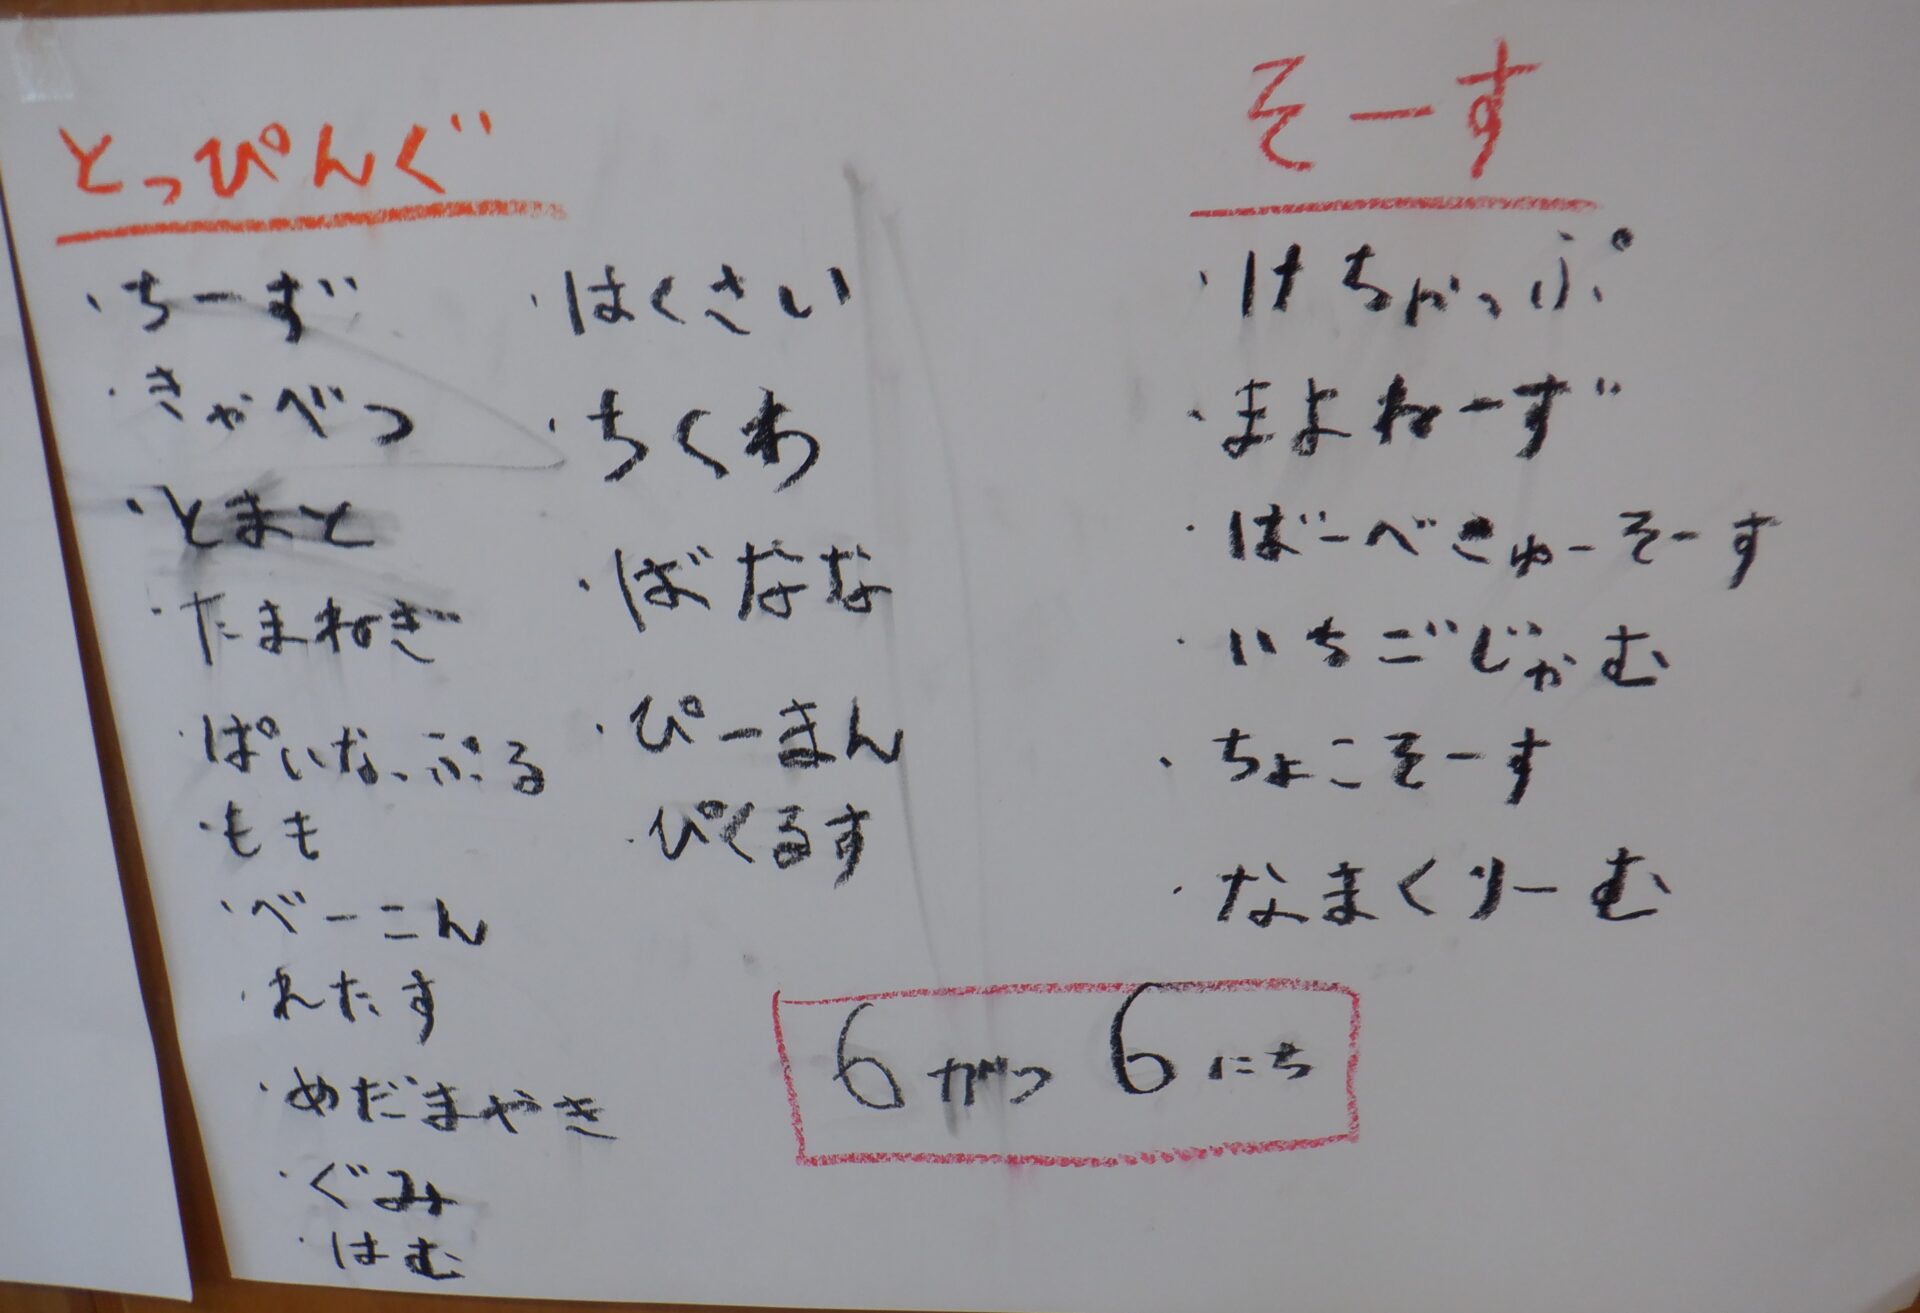 とっぴんぐ
・ちーず
・きゃべつ
・とまと
・たまねぎ
・ぱいなっぷる
・もも
・べーこん
・れたす
・めだまやき
・ぐみ
・はむ
・はくさい
・ちくわ
・ばなな
・ぴーまん
・ぴくるす
そーす
・けちゃっぷ
・まよねーず
・ばーべきゅーそーす
・いちごじゃむ
・ちょこそーす
・なまくりーむ
6がつ6にち